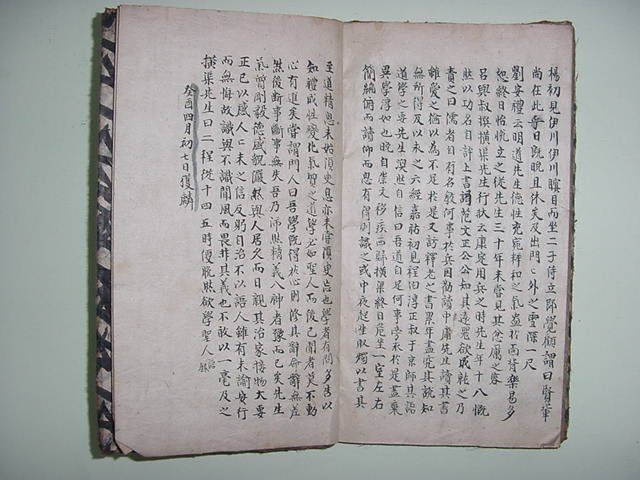 楊初見伊川伊川瞑目而坐二子侍立旣覺顧謂曰賢輩
尚在此乎日旣晚且休矣及出門〻外之雪深一尺
劉安禮云明道先生德性充完粹和之氣盎於面背樂易多
恕終日怡悅立之從先生三十年未嘗見其忿厲之容
呂與叔撰橫渠先生行狀云康定用兵之時先生年十八慨
然以功名自許上書謁范文正公公知其遠器欲成就之乃
責之曰儒者自有名敎何事於兵因勸讀中庸先生讀其書
雖愛之猶以爲不足於是又訪釋老之書累年盡究其說知
無所得反以求之六經嘉祐初見程伯淳正叔于京師共語
道學之要先生渙然自信曰吾道自足何事旁求於是盡棄
異學淳如也晚自崇文移疾西歸橫渠終日危坐一室左右
簡編俯而讀仰而思有得則識之或中夜起坐取燭以書其
至道精思未始須臾息亦未嘗須臾忘也學者有問多告以
知禮成性變化氣質之道學必如聖人而後已聞者莫不動
心有進矣嘗謂門人曰吾學旣得於心則修其辭命辭無差
然後斷事斷事無失吾乃沛然精義入神者豫而已矣先生
氣質剛毅德盛貌嚴然與人居久而日親其治家接物大要
正己以感人〻未之信反躬自治不以語人雖有未諭安行
而無悔故識與不識聞風而畏非其義也不敢以一毫及之
橫渠先生曰二程從十四五時便脫然欲學聖人
癸酉四月初七日獲麟